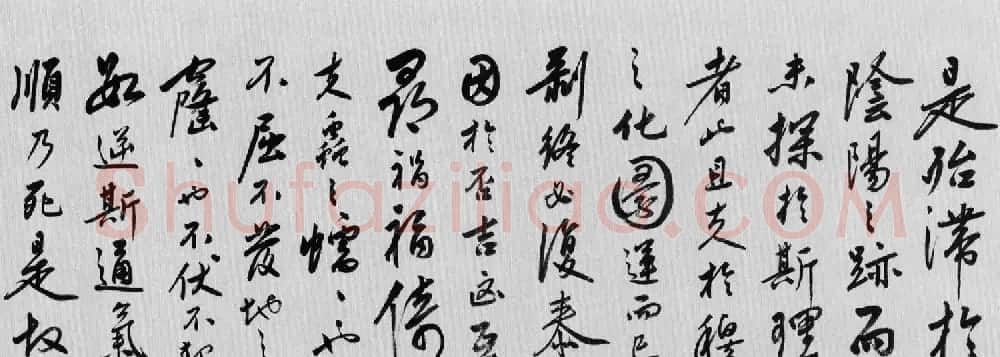 是殆滞於
陰陽之跡而
未探於斯理
者此且夫於穆
之化圜運而已
剥終必復泰
因於否吉凶互
尋禍福倚
夫之蠕〻也
不屈不發地之
〻也不伏不
逆斯通氣
順乃死是故
Shufaziliao.COM